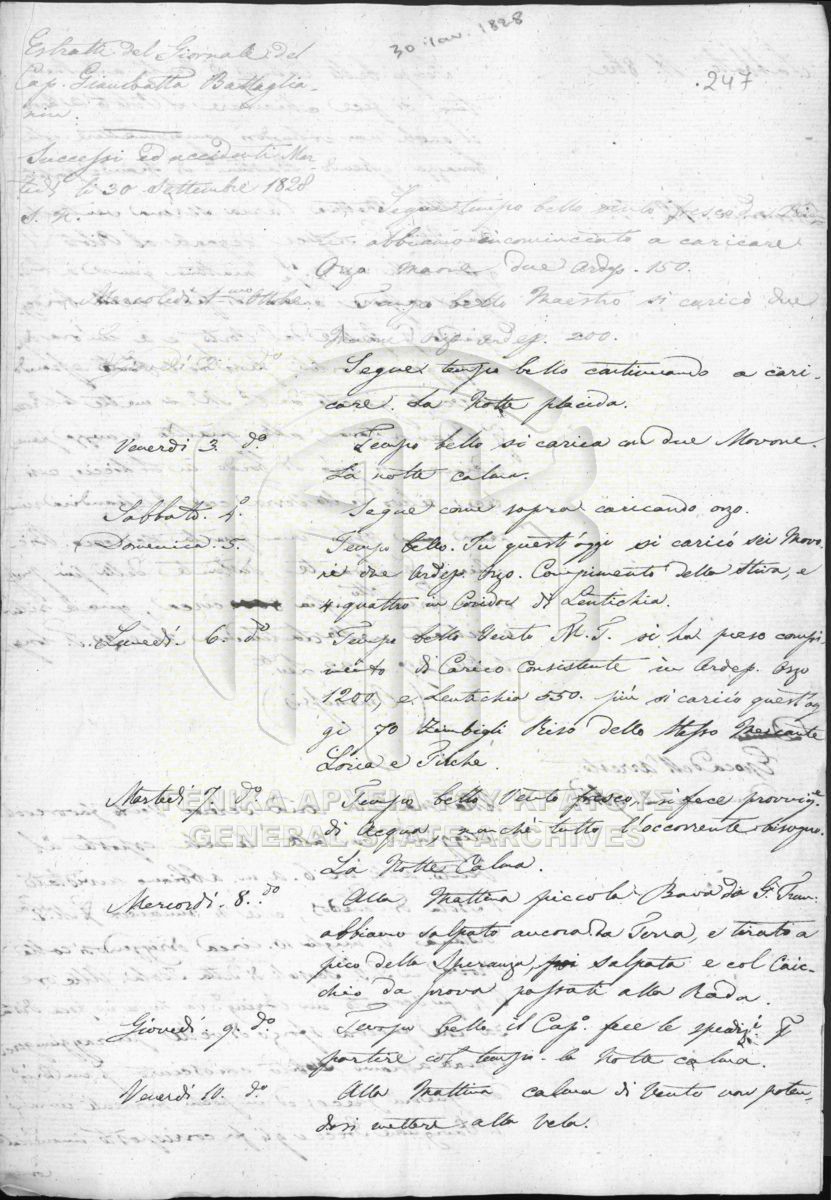 30 1828
.247
Estratti del Giornale del
Cap. Giambatta Battaglia-
rini.
Successi ed accidenti Mar-
tedì li 30 Settembre 1828
S. N.
Segue tempo bello vento fresco
abbiamo incominciato a caricare
Orzo Maone due Ardep. 150.
Mercoledì 1mo Ottobre Tempo bello Maestro si caricò due
Ardep. 200.
2 do Segue tempo bello continuando a cari-
care. La Notte placida.
Venerdì 3. do. Tempo bello si carica con due Movone.
La notte calma.
Sabbato. 4o. Segue come sopra caricando orzo.
Domenica. 5. Tempo bello. In quest'oggi si caricò sei Movo-
ne due Ardep. Orzo. Compimento della Stiva, e
4 quattro in Coridor di Lentichia.
Lunedì. 6. do Tempo bello Vento M. T. si ha preso compi-
mento di Carico consistente in Ardep. Orzo
1200, e Lentichia 550. più si caricò quest'og-
gi 70 Zimbigli Riso dello stesso Mercante
Loria e Tilché.
Martedì 7. do. Tempo bello Vento fresco, si fece provvige
di Acqua, nonché tutto l'occorrente bisogno.
La Notte Calma.
Mercordì. 8. do Alla Mattina piccola Bava da G. Tram.
abbiamo salpato ancora da Terra, e tirato a
pico della Speranza, salpata e col Caic-
chio da prova passati alla Rada.
Giovedì. 9. do. Tempo bello il Capo. fece le spedizi. p
partire col tempo. la Notte calma.
Venerdì 10. do Alla Mattina calma di Vento non poten-
dosi mettere alla Vela.
ΓΕΝΙΚΑ ΑΡΧΕΙΑ ΤΟΥ ΚΡΑΤΟΥΣ
GENERAL STATE ARCHIVES